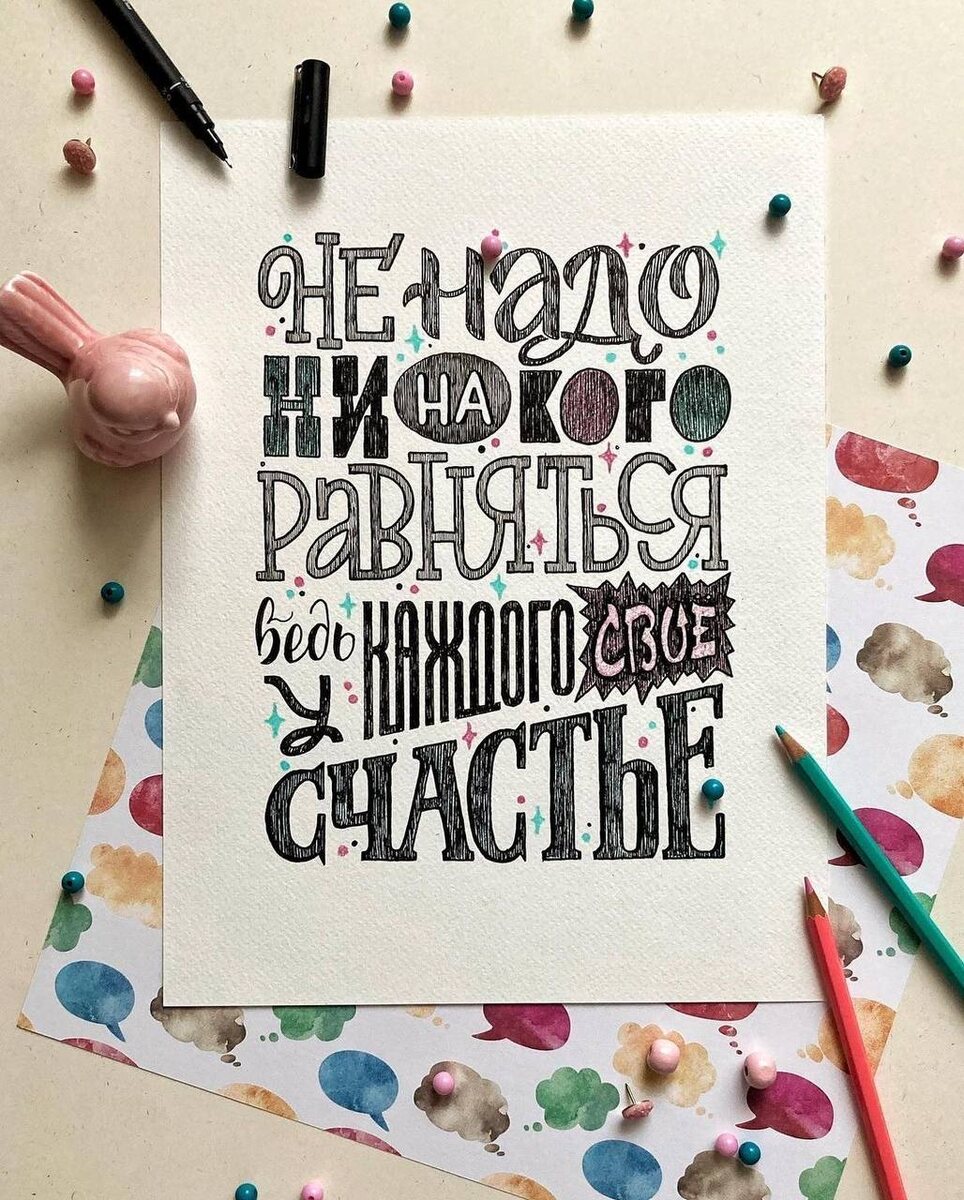 НЕ НАДО
НИ НА КОГО
РАВНЯТЬСЯ
ведь КАЖДОГО СВОЕ
У
СЧАСТЬЕ